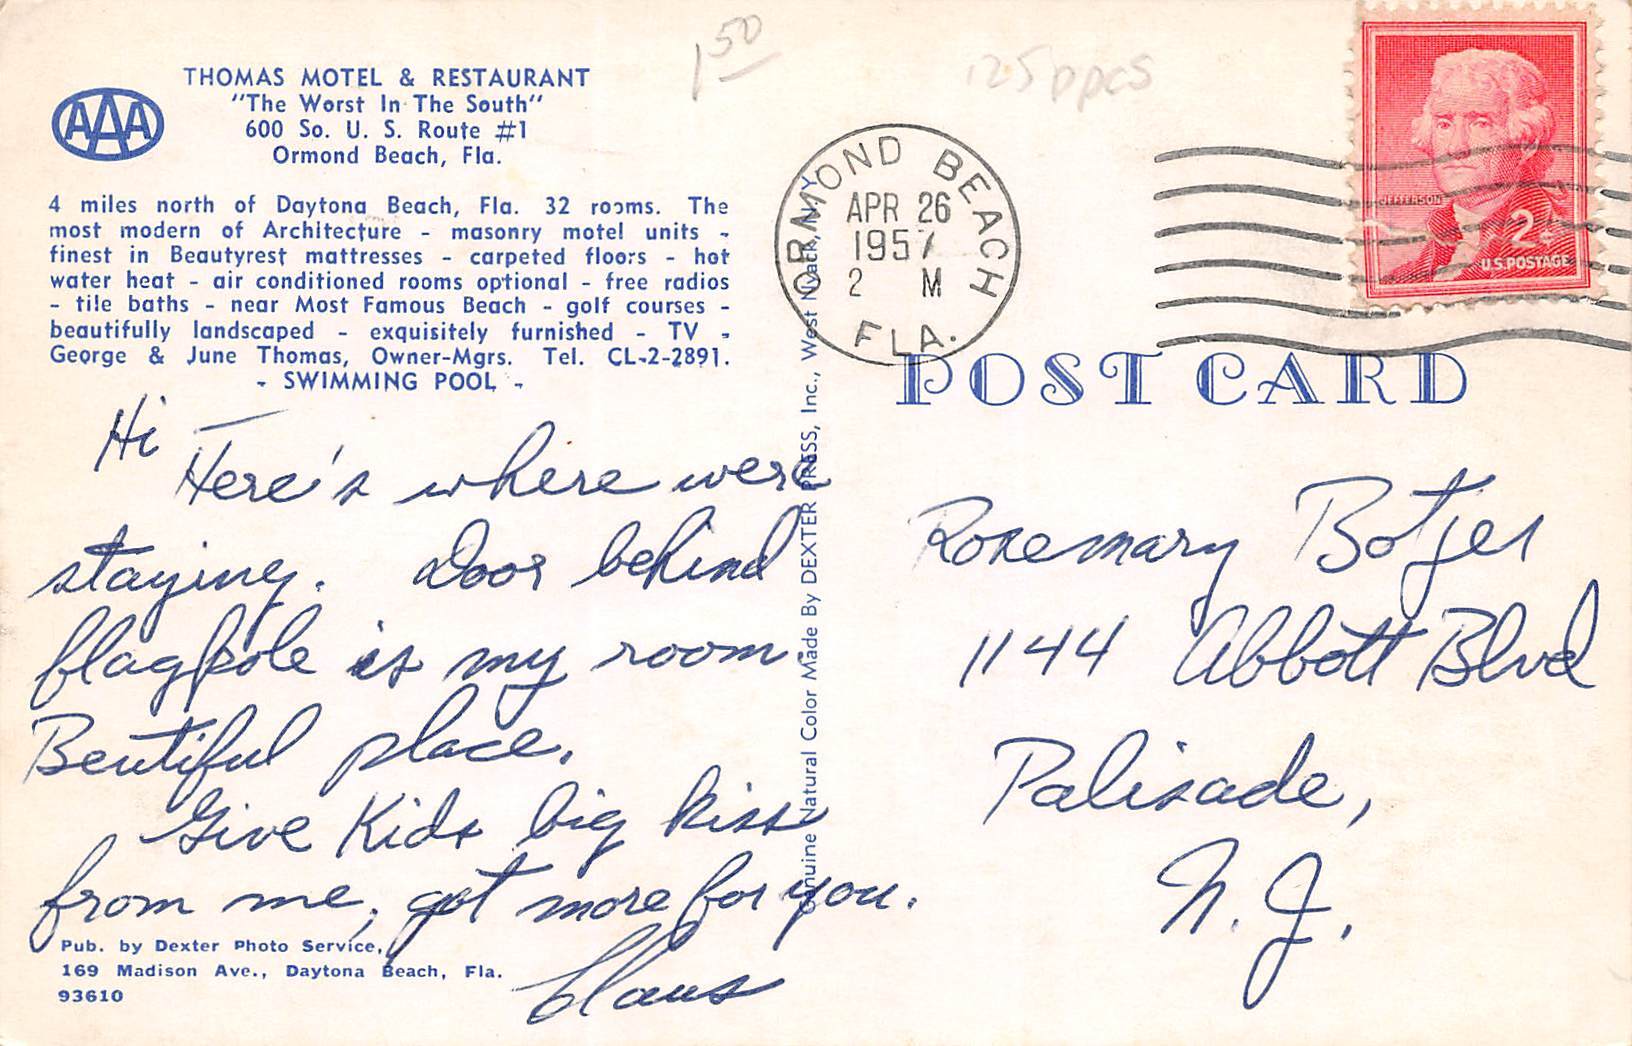 1 50
125 ppcs
AAA
THOMAS MOTEL & RESTAURANT
"The Worst In The South"
600 So. U. S. Route #1
Ormond Beach, Fla.
4 miles north of Daytona Beach, Fla. 32 rooms. The
most modern of Architecture - masonry motel units -
finest in Beautyrest mattresses - carpeted floors - hot
water heat - air conditioned rooms optional - free radios
- tile baths - near Most Famous Beach - golf courses -
beautifully landscaped - exquisitely furnished - TV -
George & June Thomas, Owner-Mgrs. Tel. CL-2-2891.
- SWIMMING POOL -
Hi —
Here's where were
staying. Door behind
flagpole is my room
Beutiful place.
Give Kids big kiss
from me, got more for you.
Claus
Pub. by Dexter Photo Service,
169 Madison Ave., Daytona Beach, Fla.
93610
Genuine Natural Color Made By DEXTER PRESS, Inc., West Nyack, N. Y.
ORMOND BEACH
APR 26
1957
2 M
FLA.
JEFFERSON
2¢
U.S. POSTAGE
POST CARD
Rosemary Botjer
1144 Abbott Blvd
Palisade,
N. J.